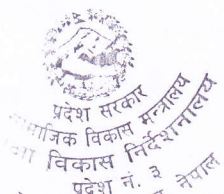 प्रदेश सरकार
सामाजिक विकास मन्त्रालय
विकास निर्देशनालय
प्रदेश नं. ३
नेपाल